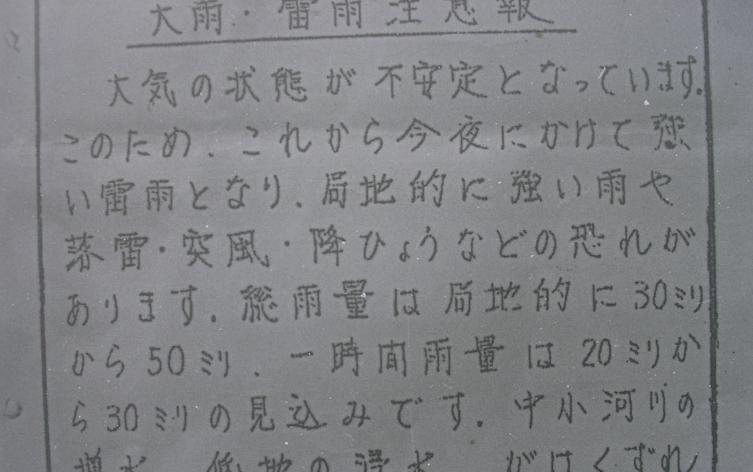 大雨・雷雨注意報
大気の状態が不安定となっています。
このため、これから今夜にかけて強
い雷雨となり、局地的に強い雨や
落雷・突風・降ひょうなどの恐れが
あります。総雨量は局地的に30ミリ
から50ミリ、一時間雨量は20ミリか
ら30ミリの見込みです。中小河川の
増水、低地の浸水、がけくずれ